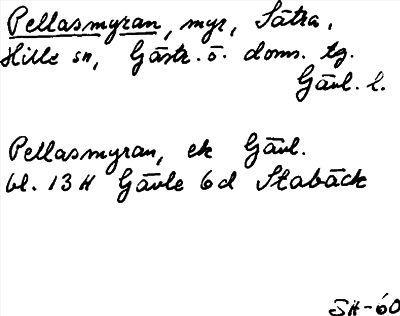 Pellasmyran, myr, Sätra,
Hille sn, Gästr. ö. doms. tg.
Gävl. l.
Pellasmyran, ek Gävl.
bl. 13 H Gävle 6d Stabäck
SH-60